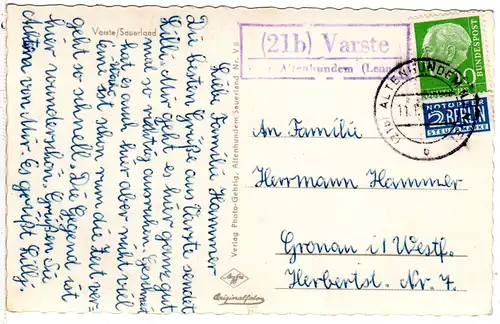 Varste/Sauerland
Liebe Familie Hammer
Die besten Grüße aus Varste sendet
Lilli. Mir geht es hier ganz gut
mal so richtig ausruhen. Geschneit
hat es auch hier aber nicht viel
eine schon rum die Zeit ver-
geht so schnell. Die Gegend ist
hier wunderschön. Grüßen Sie
von Mir Es grüßt Lilly
Verlag Photo-Gehrig, Altenhundem-Sauerland Nr. V 8
Agfa
Originalfoto
(21b) Varste
Altenhundem (Lenne
(21b) ALTENHUNDEM
11.1.
b
20
DEUTSCHE BUNDESPOST
NOTOPFER
2 BERLIN
STEUERMARKE
An Familie
Herrmann Hammer
Gronau i/ Westf.
Herbertsl. Nr. 7.